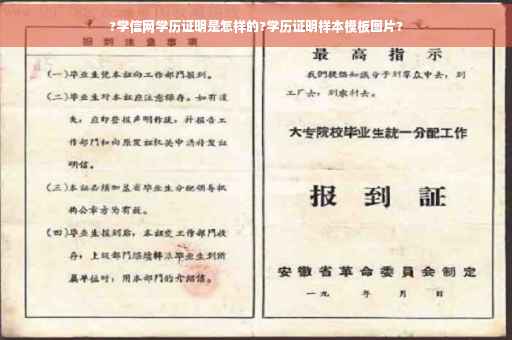 ?学信网学历证明是怎样的?学历证明样本模板图片?
报到注意事项
(一)毕业生凭本证向工作部门报到。
(二)毕业生对本证应注意保存。如有遗
失,应即登报声明作废,并报告工
作部门和向原发证机关申请补发证
明信。
(三)本证必须加盖省毕业生分配领导机
构公章方为有效。
(四)毕业生报到后,本证交工作部门收
存;上级部门继续转派毕业生到所
属单位时,用本部门的介绍信。
最高指示
我们提倡知识分子到群众中去,到
工厂去,到农村去。
大专院校毕业生统一分配工作
报到证
安徽省革命委员会制定
一九 年 月 日